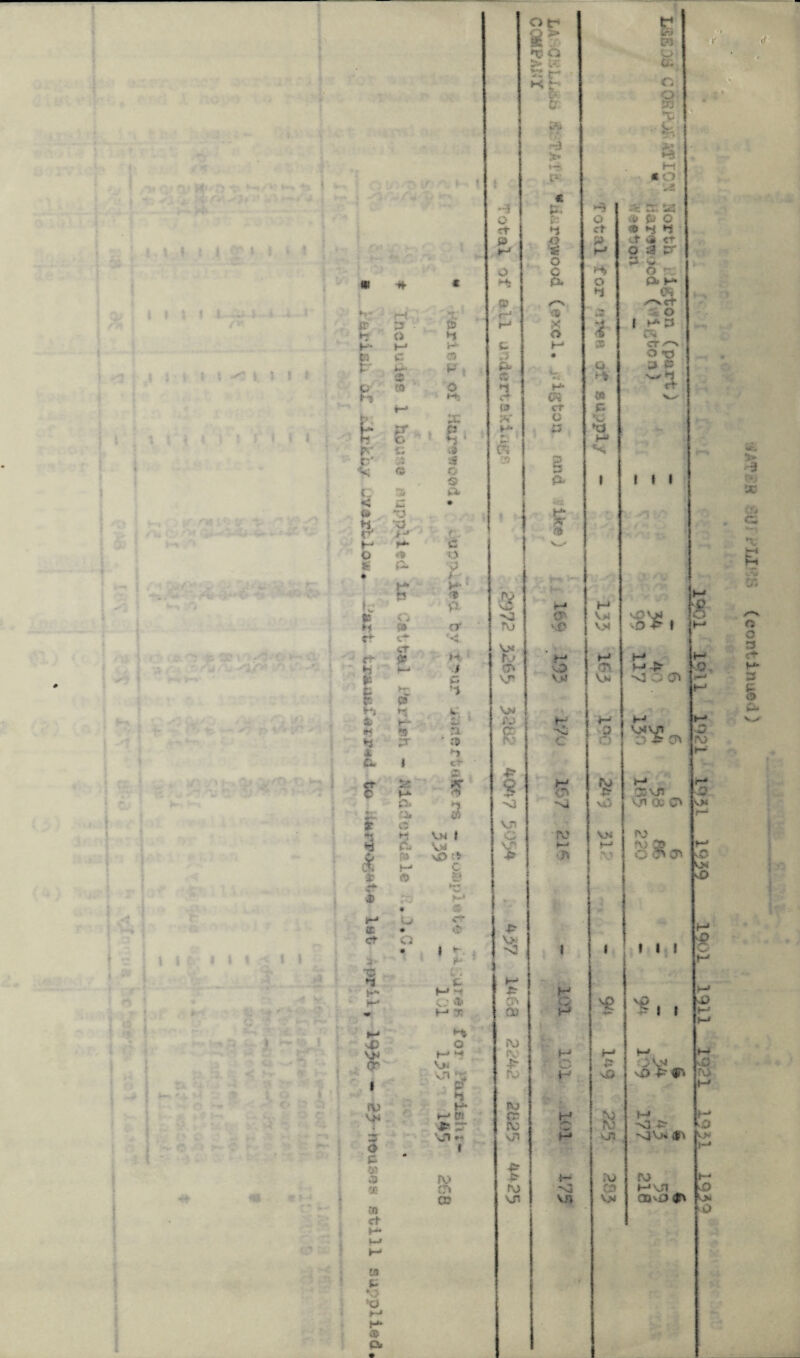 WATER SUPPLIES (continued)
1901 1911 1921 1931 1939 1901 1911 1921 1931 1939
LEEDS CORPORATION North Rigton (part) - - 6 6 6 6 - - 6 6 6
*Harewood (Wigton) - 34 40 54 58 86 - - 34 43 59
Weeton - 99 117 130 185 220 - 94 109 177 218
Total for area of supply - 133 163 190 249 312 - 94 149 225 283
LASCELLES ESTATE COMPANY *Harewood (exc. Wigton and Wike) 169 193 170 167 216 - 101 101 101 175
Total of all undertakings 2972 3265 3282 4047 5054 457 1468 2242 2825 4425
* Parish of Harewood. Supplied by four undertakers - complete figures for Parish:-
- 339 - 101 155 195 268
# Includes 1 house supplied in Cattal Parish - Nidderdale R.D.C.
Parish of Kirkby Overblow. Part transferred to Harrogate 1st April, 1938 - 23 houses still supplied.